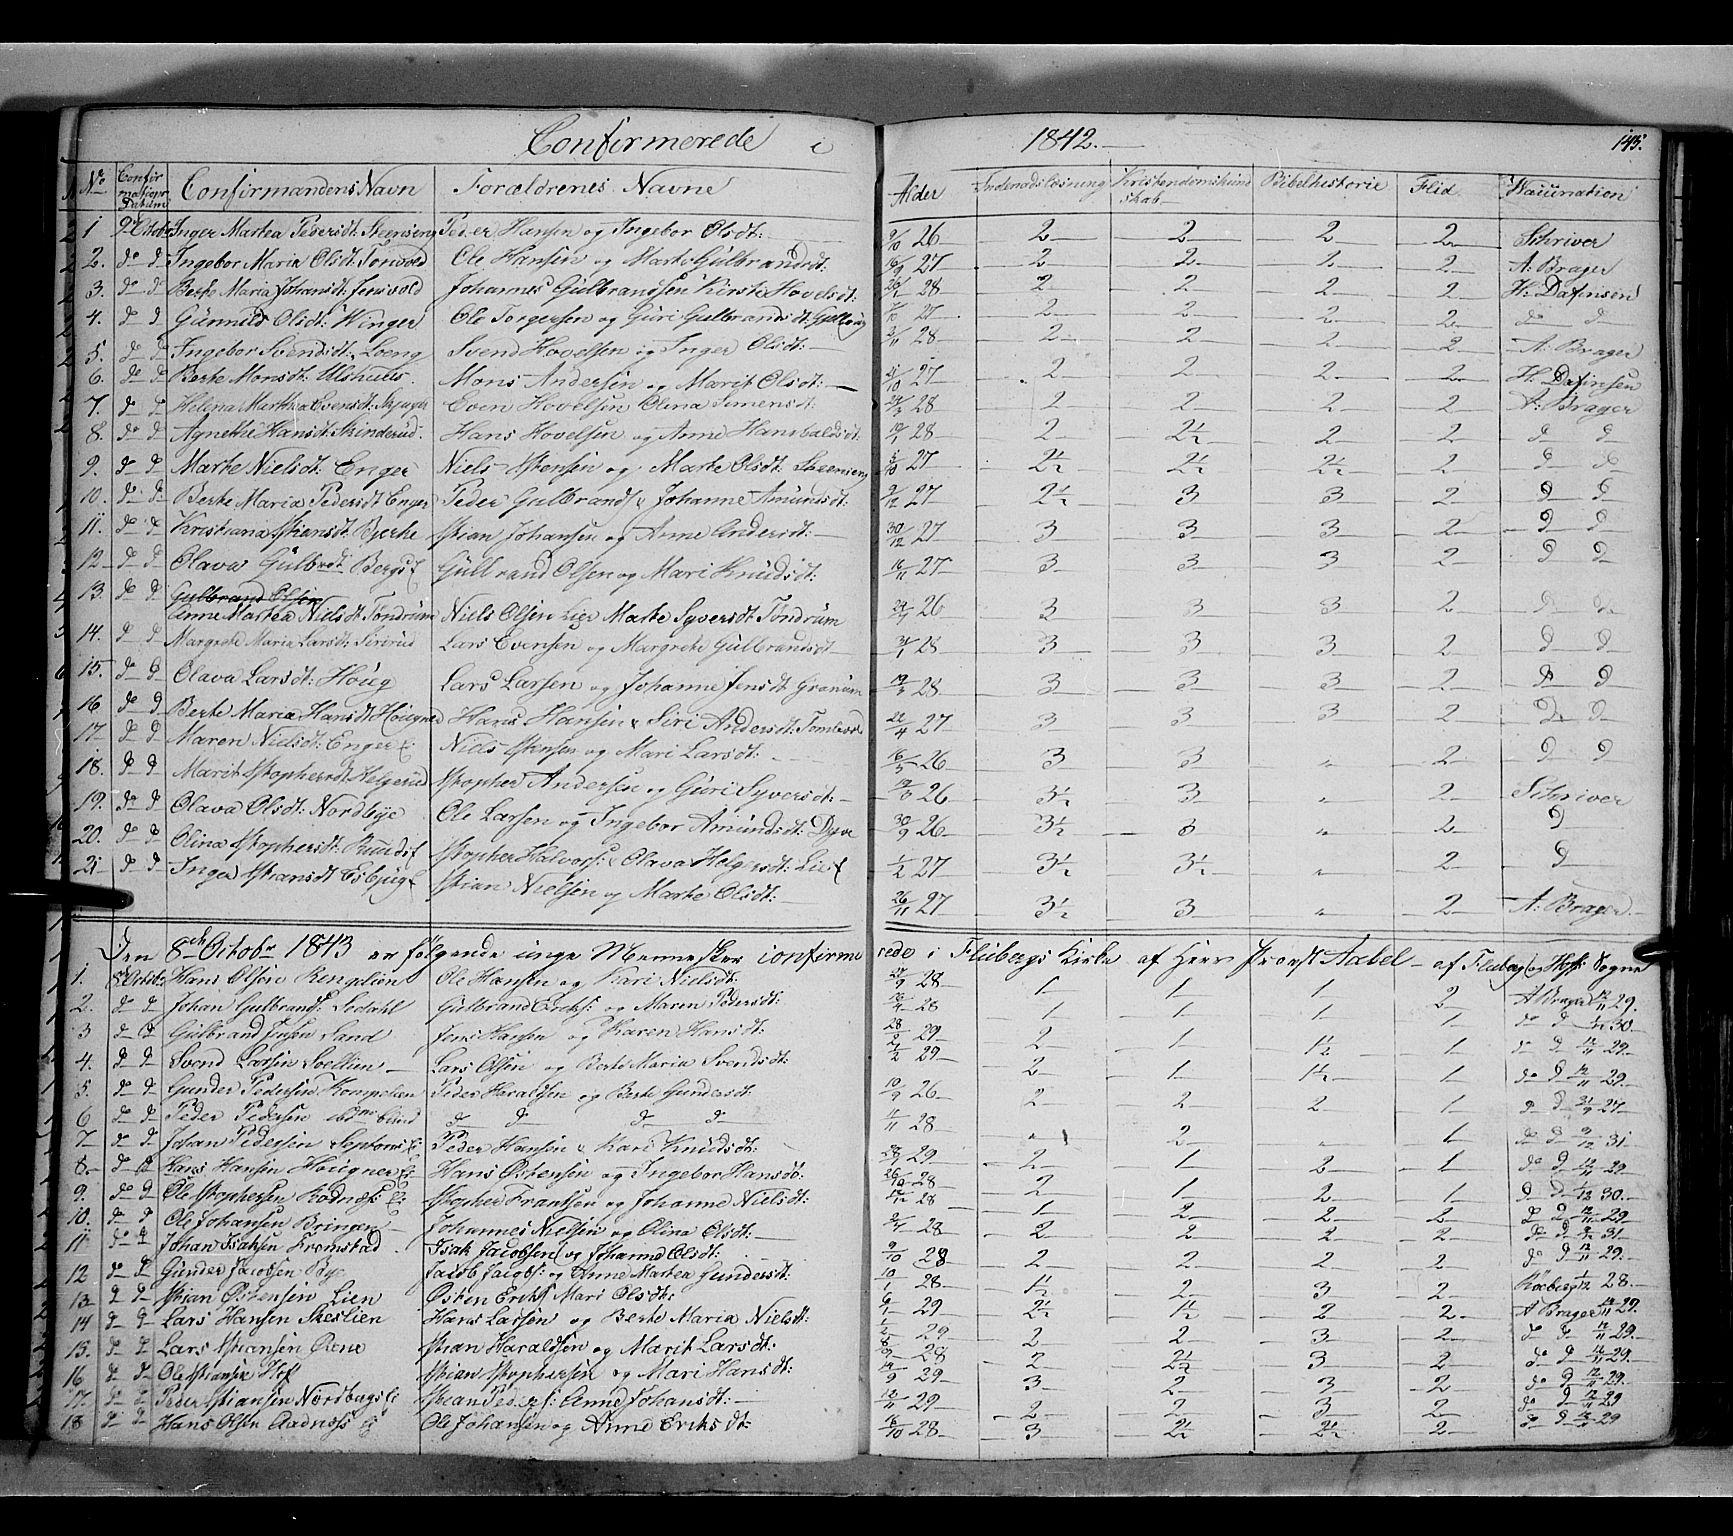 Confirmerede i 1842. 145.
No Confirmations Datum Confirmandens Navn Forældrenes Navne Alder Indenadslæsning Kristendomskundskab Bibelhistorie Flid Vaccination
1 2 Octob Inger Martea Pedersdt Steenseng Peder Hansen og Ingebor Olsdt: 2/10 26 2 2 2 2 Schriver
2. do d Ingebor Maria Olsdt: Tonvold Ole Hansen og Marte Gulbrandsdt: 16/9 27 2 2 2 2 A: Brager
3. do d Berte Maria Johansdt: Johannes Gulbrandsen Kirsti Hovelsdt: 28 2 2 2 2 H: Dafinsen
4. d d Gunnild Olsdt: Winger Ole Torgersen og Guri Gulbrandsdt: 27 2 2 2 2 d d
5. d d Ingebor Svendsdt: Loeng Svend Hovelsen og Inger Olsdt: 28 2 2 2 2 A: Brager
6. do d Berte Monsdt: Ulshuus. Mons Andersen og Marit Olsdt: 27 2 2 2 2 H: Dafinsen
7. d d Helena Marthea Evensdt: Even Hovelsen Olina Simensdt: 28 2 2 2 2 A: Brager
8. do d Agnethe Hansdt: Skinderud. Hans Hovelsen og Anne Hansdt 28 2 2½ 2 2 d d
9. d d Marte Nielsdt: Enger Niels Stensen og Marte Olsdt: Steenseng 27 2½ 2½ 2½ 2 d d
10. d d Berte Maria Pedersdt Enger Peder Gulbrands & Johanne Amundsdt: 2/12 27 2½ 3 3 2 d d
11. d d Kristiana Stiansdt: Bjerke Stian Johansen og Anne Andersdt: 30/12 27 3 3 3 2 d d
12. d d Olava Gulbrdt: Bergs Gulbrand Olsen og Mari Knudsdt: 16/11 27 3 3 3 2 d d
13. do d Gulbrand Olsen
Anne Martea Nielsdt: Tondrum Niels Olsen Marte Syversdt: Tondrum 26 3 3 3 2 d d
14. d d Margrete Maria Larsdt: Lars Evensen og Margrete Gulbrandsdt 28 3 3 3 2 d d
15. d d Olava Larsdt: Houg Lars Larsen og Johanne Jensdt Granum 19/3 28 3 3 3 2 d d
16 d d Berte Maria Hansdt Hougner Hans Hansen & Siri Andersdt: 22/4 27 3 3 3 2 d d
17. d d Maren Nielsdt: Enger Niels Stensen og Mari Larsdt: 16/5 26 3 3 „ 2 d d
18. d d Marit Stophersdt: Helgerud Stopher Andersen og Guri Syversdt: 26 3½ 3 „ 2 Schriver
19. d d Olava Olsdt: Nordbye Ole Larsen og Ingebor Amundsdt: Dyve 30/9 26 3½ 3 „ 2 d
20. d d Olina Stophersdt: Stopher Halvors: & Olava Helgesdt: Lie 1/2 27 3½ 3½ „ 2 d
21 d d Inger Stiansdt Stian Nielsen og Marte Olsdt: 26/11 27 3½ 3 „ 2 A: Brager
Den 8de Octobr 1843 er følgende unge Mennesker confirmerede i Flubergs Kirke af Herr Provst Aabel af Fluberg og Hofs Sogne
1. 8 Octobr Hans Olsen Rengelion Ole Hansen og Kari Nielsdt: 28 1 1 1 2 A Brager 12/11 29.
2. d d Johan Gulbrands: Lidahl Gulbrand Eriks: og Maren Pedersdt: 28 1 1 1 1 do d 30
3 d d Gulbrand Jensen Sand Jens Hansen og Karen Hansdt: 29 2 1 1½ 1 do d 12/11 29.
4. d d Svend Larsen Soellien Lars Olsen og Berte Maria Svendsdt: 29 2 1 1½ 1 do d 12/11 29.
5. d d Gunder Pedersen Kompelien Peder Haraldsen og Berte Gundersdt: 10/9 26 2 2 2 1 d d 21/9 27
6 d d Peder Pedersen ibdm blind d d d d 28 „ 2 „ 1 do d 9/12 31.
7. d d Johan Pedersen Peder Hansen & Kari Knudsdt: 29 2 1 2 1 do d 12/11 29
8. d d Hans Hansen Hougner Hans Østensen og Ingebor Hansdt: 28 2 1 2 1 d d 1/12 30.
9. d d Ole Stophersen Rodnæs Stopher Frantsen og Johanne Nielsdt: 28 1 2 2 2 d d 12/11 29
10. d d Ole Johansen Bringen Johannes Nielsen og Olina Olsdt: 28 2 2 2 2 do d 31
11 d d Johan Isaksen Fremstad Isak Jacobsen og Johanne Olsdt: 9/10 28 2 2 2 2 do d 12/11 29.
12 d d Gunder Jacobsen Bye Jacob Jacobs: og Anne Martea Gundersdt: 28 1½ 2 3 2 1/12 28.
13 d d Stian Østensen Lien Østen Eriks Mari Olsdt: 29 2½ 1½ 2 2 A Brager 12/11 29.
14 d d Lars Hansen Skeslien Hans Larsen og Berte Maria Nielsdt: 29 2 2 3 2 d d 12/11 29.
15. d d Lars Stiansen Stian Haraldsen og Marit Larsdt: 28 2 2½ 3 2 do d 12/11 29.
16 d d Ole Stiansen Hof Stian Stophersen og Mari Hansdt: 29 3 2 3 2 do d 12/11 29.
17. d d Peder Stiansen Stian Peders: Anne Johansdt: 12/11 29 2 2 3 2 do d 12/11 29
18 d d Hans Olsen Aadnæs Ole Johansen og Anne Eriksdt: 16/10 28 3 2½ 2½ 2 d d 29